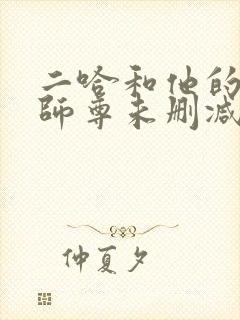 二哈和他的
师尊未删减
仲夏夕